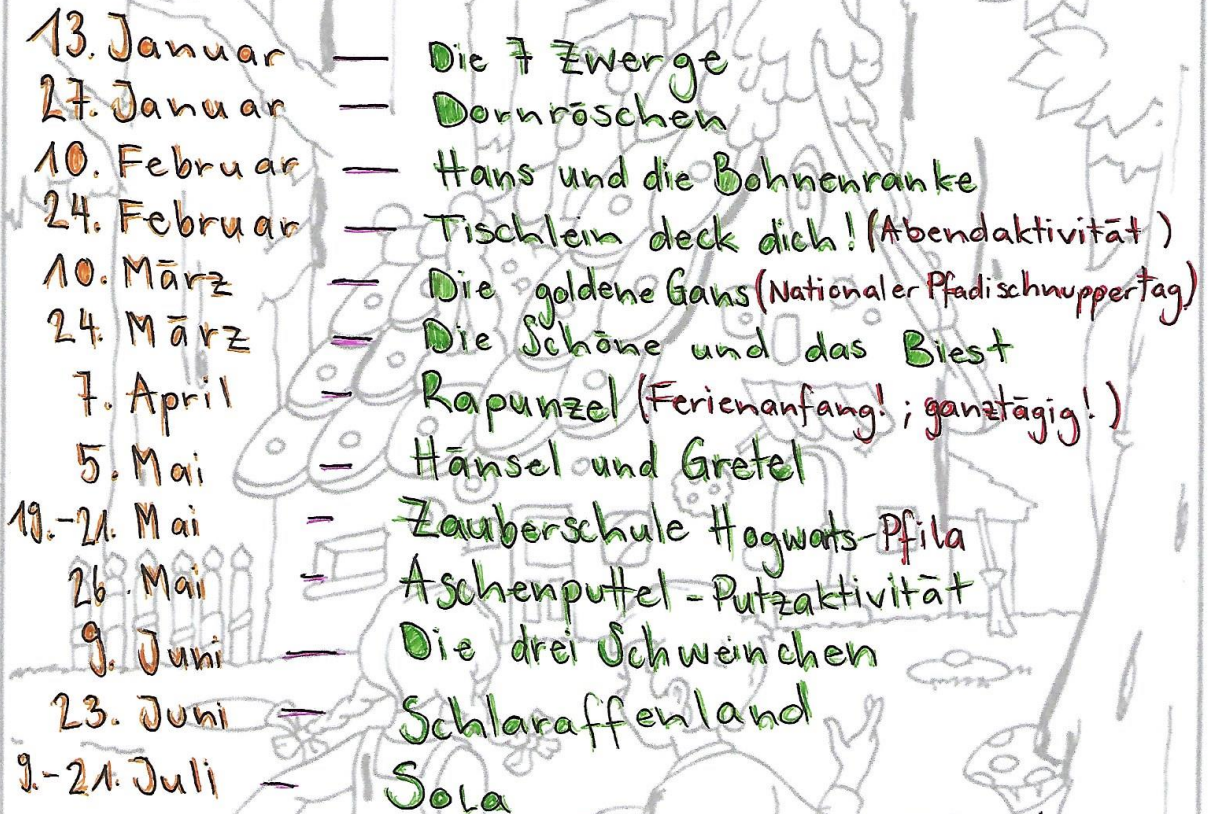 13. Januar — Die 7 Zwerge
27. Januar — Dornröschen
10. Februar — Hans und die Bohnenranke
24. Februar — Tischlein deck dich! (Abendaktivität)
10. März — Die goldene Gans (Nationaler Pfadischnuppertag)
24. März — Die Schöne und das Biest
7. April — Rapunzel (Ferienanfang! ; ganztägig!)
5. Mai — Hänsel und Gretel
19.-21. Mai — Zauberschule Hogwats-Pfila
26. Mai — Aschenputtel - Putzaktivität
9. Juni — Die drei Schweinchen
23. Juni — Schlaraffenland
9.-21. Juli — Sola